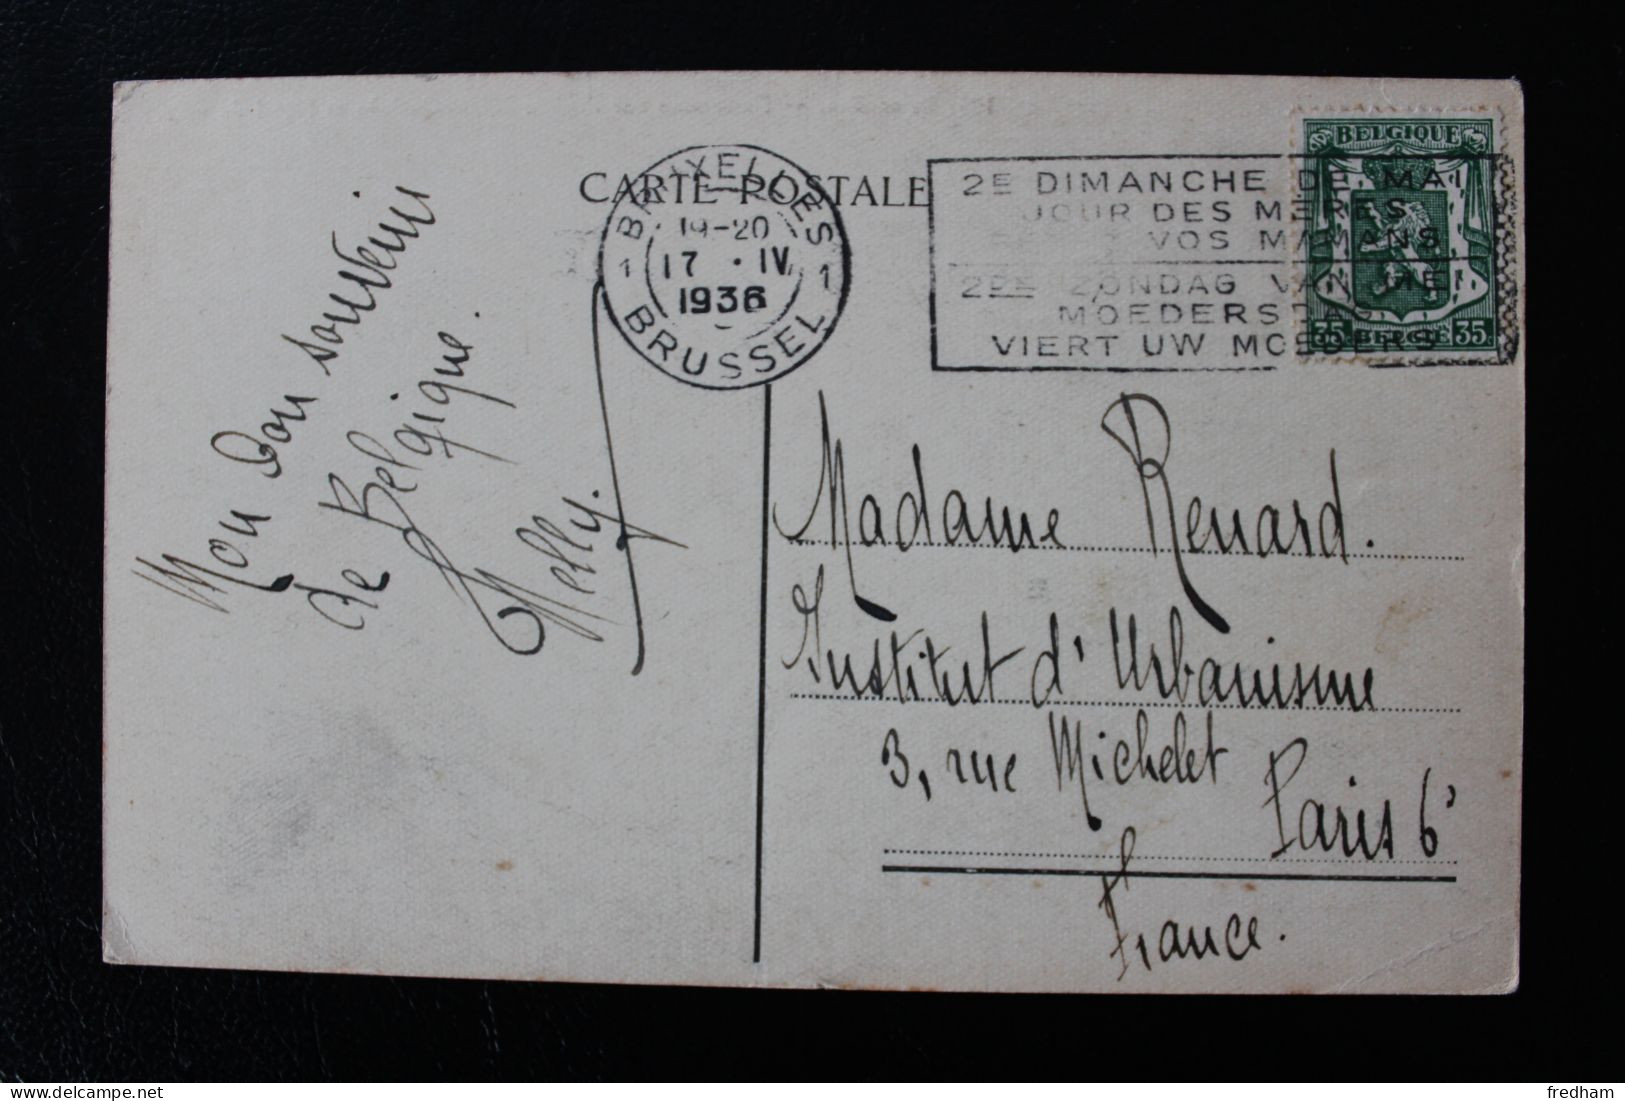 CARTE POSTALE
BRUXELLES
1 1
19-20
17 · IV
1936
BRUSSEL
2E DIMANCHE DE MAI
JOUR DES MERES
VOS MAMANS
2DE ZONDAG VAN MEI
MOEDERSDAG
VIERT UW MOEDERS
BELGIQUE
35 BELGIË 35
Mon bon souvenir
de Belgique.
Nelly.
Madame Renard.
Institut d'Urbanisme
3, rue Michelet
Paris 6e
France.
delcampe.net
fredham